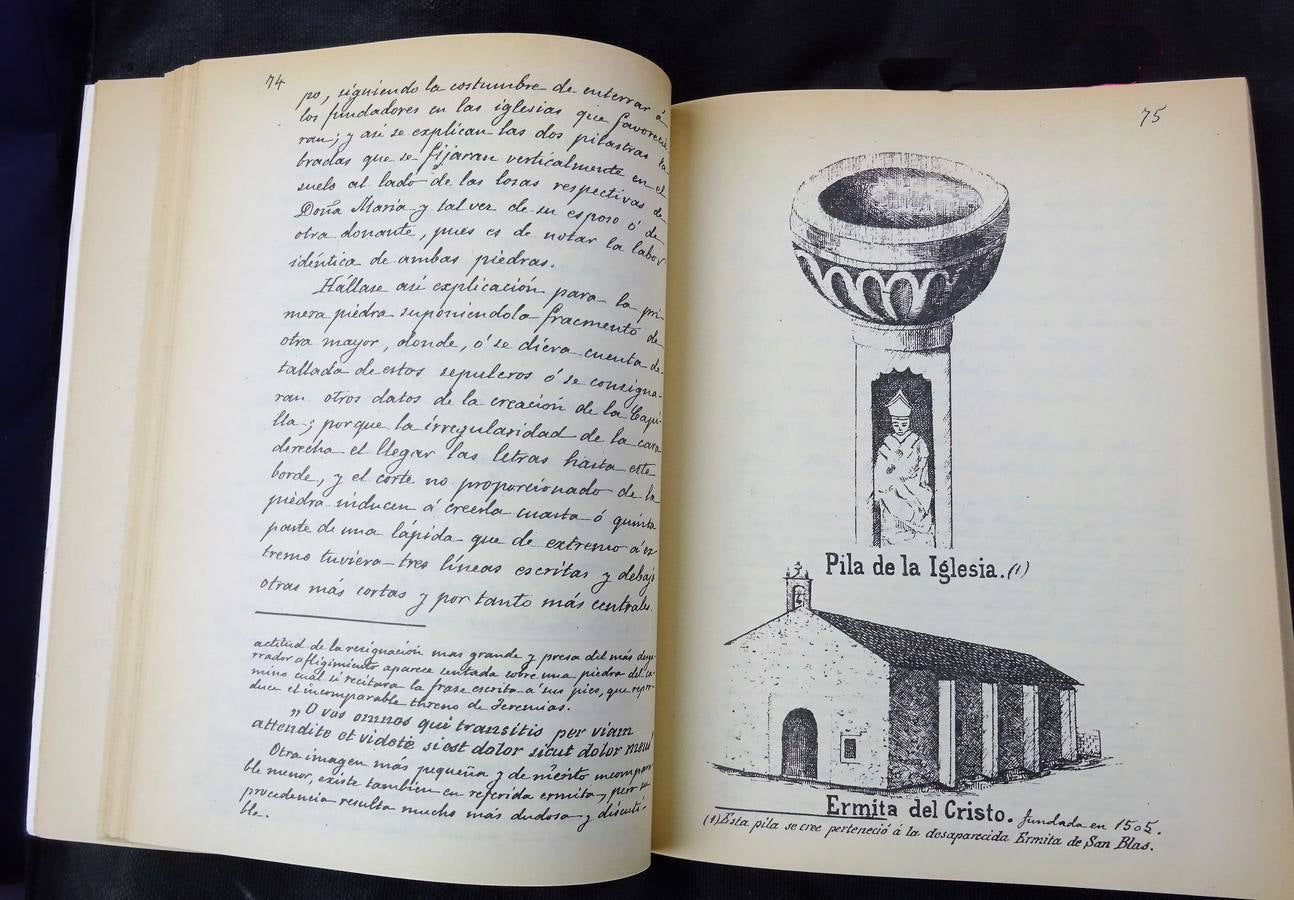 74
po, siguiendo la costumbre de enterrar á
los fundadores en las iglesias que favorecie-
ran; y así se explican las dos pilastras la-
bradas que se fijaran verticalmente en el
suelo al lado de las losas respectivas de
Doña María y tal vez de su esposo ó de
otra donante, pues es de notar la labor
idéntica de ambas piedras.
Hállase así explicación para la pri-
mera piedra suponiendola fracmento de
otra mayor, donde, ó se diera cuenta de-
tallada de estos sepulcros ó se consigna-
ran otros datos de la creación de la Capi-
lla; porque la irregularidad de la cara
derecha el llegar las letras hasta este
borde, y el corte no proporcionado de la
piedra inducen á creerla cuarta ó quinta
parte de una lápida que de extremo á ex
tremo tuviera tres líneas escritas y debajo
otras más cortas y por tanto más centrales.
actitud de la resignación mas grande y presa del más desga-
rrador afligimiento aparece sentada sobre una piedra del ca-
mino cual si recitara la frase escrita a sus pies, que repro-
duce el incomparable threno de Jeremías.
"O vos omnes qui transitis per viam
attendite et videte si est dolor sicut dolor meus"
Otra imagen más pequeña y de mérito incompara-
ble menor, existe también en referida ermita, pero su
procedencia resulta mucho más dudosa y discuti-
ble.
75
Pila de la Iglesia. (1)
Ermita del Cristo. fundada en 1505.
(1) Esta pila se cree perteneció á la desaparecida Ermita de San Blas.